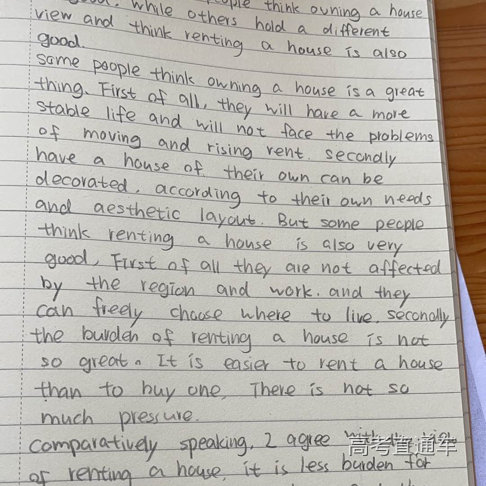 good, while others hold a different
people think owning a house
view and think renting a house is also
good.
some people think owning a house is a great
thing. First of all, they will have a more
stable life and will not face the problems
of moving and rising rent. secondly
have a house of their own can be
decorated, according to their own needs
and aesthetic layout. But some people
think renting a house is also very
good, First of all they are not affected
by the region and work. and they
can freely choose where to live. seconally
the burden of renting a house is not
so great. It is easier to rent a house
than to buy one, There is not so
much pressure.
comparatively speaking, I agree with the view
of renting a house, it is less burden for
高考直通车